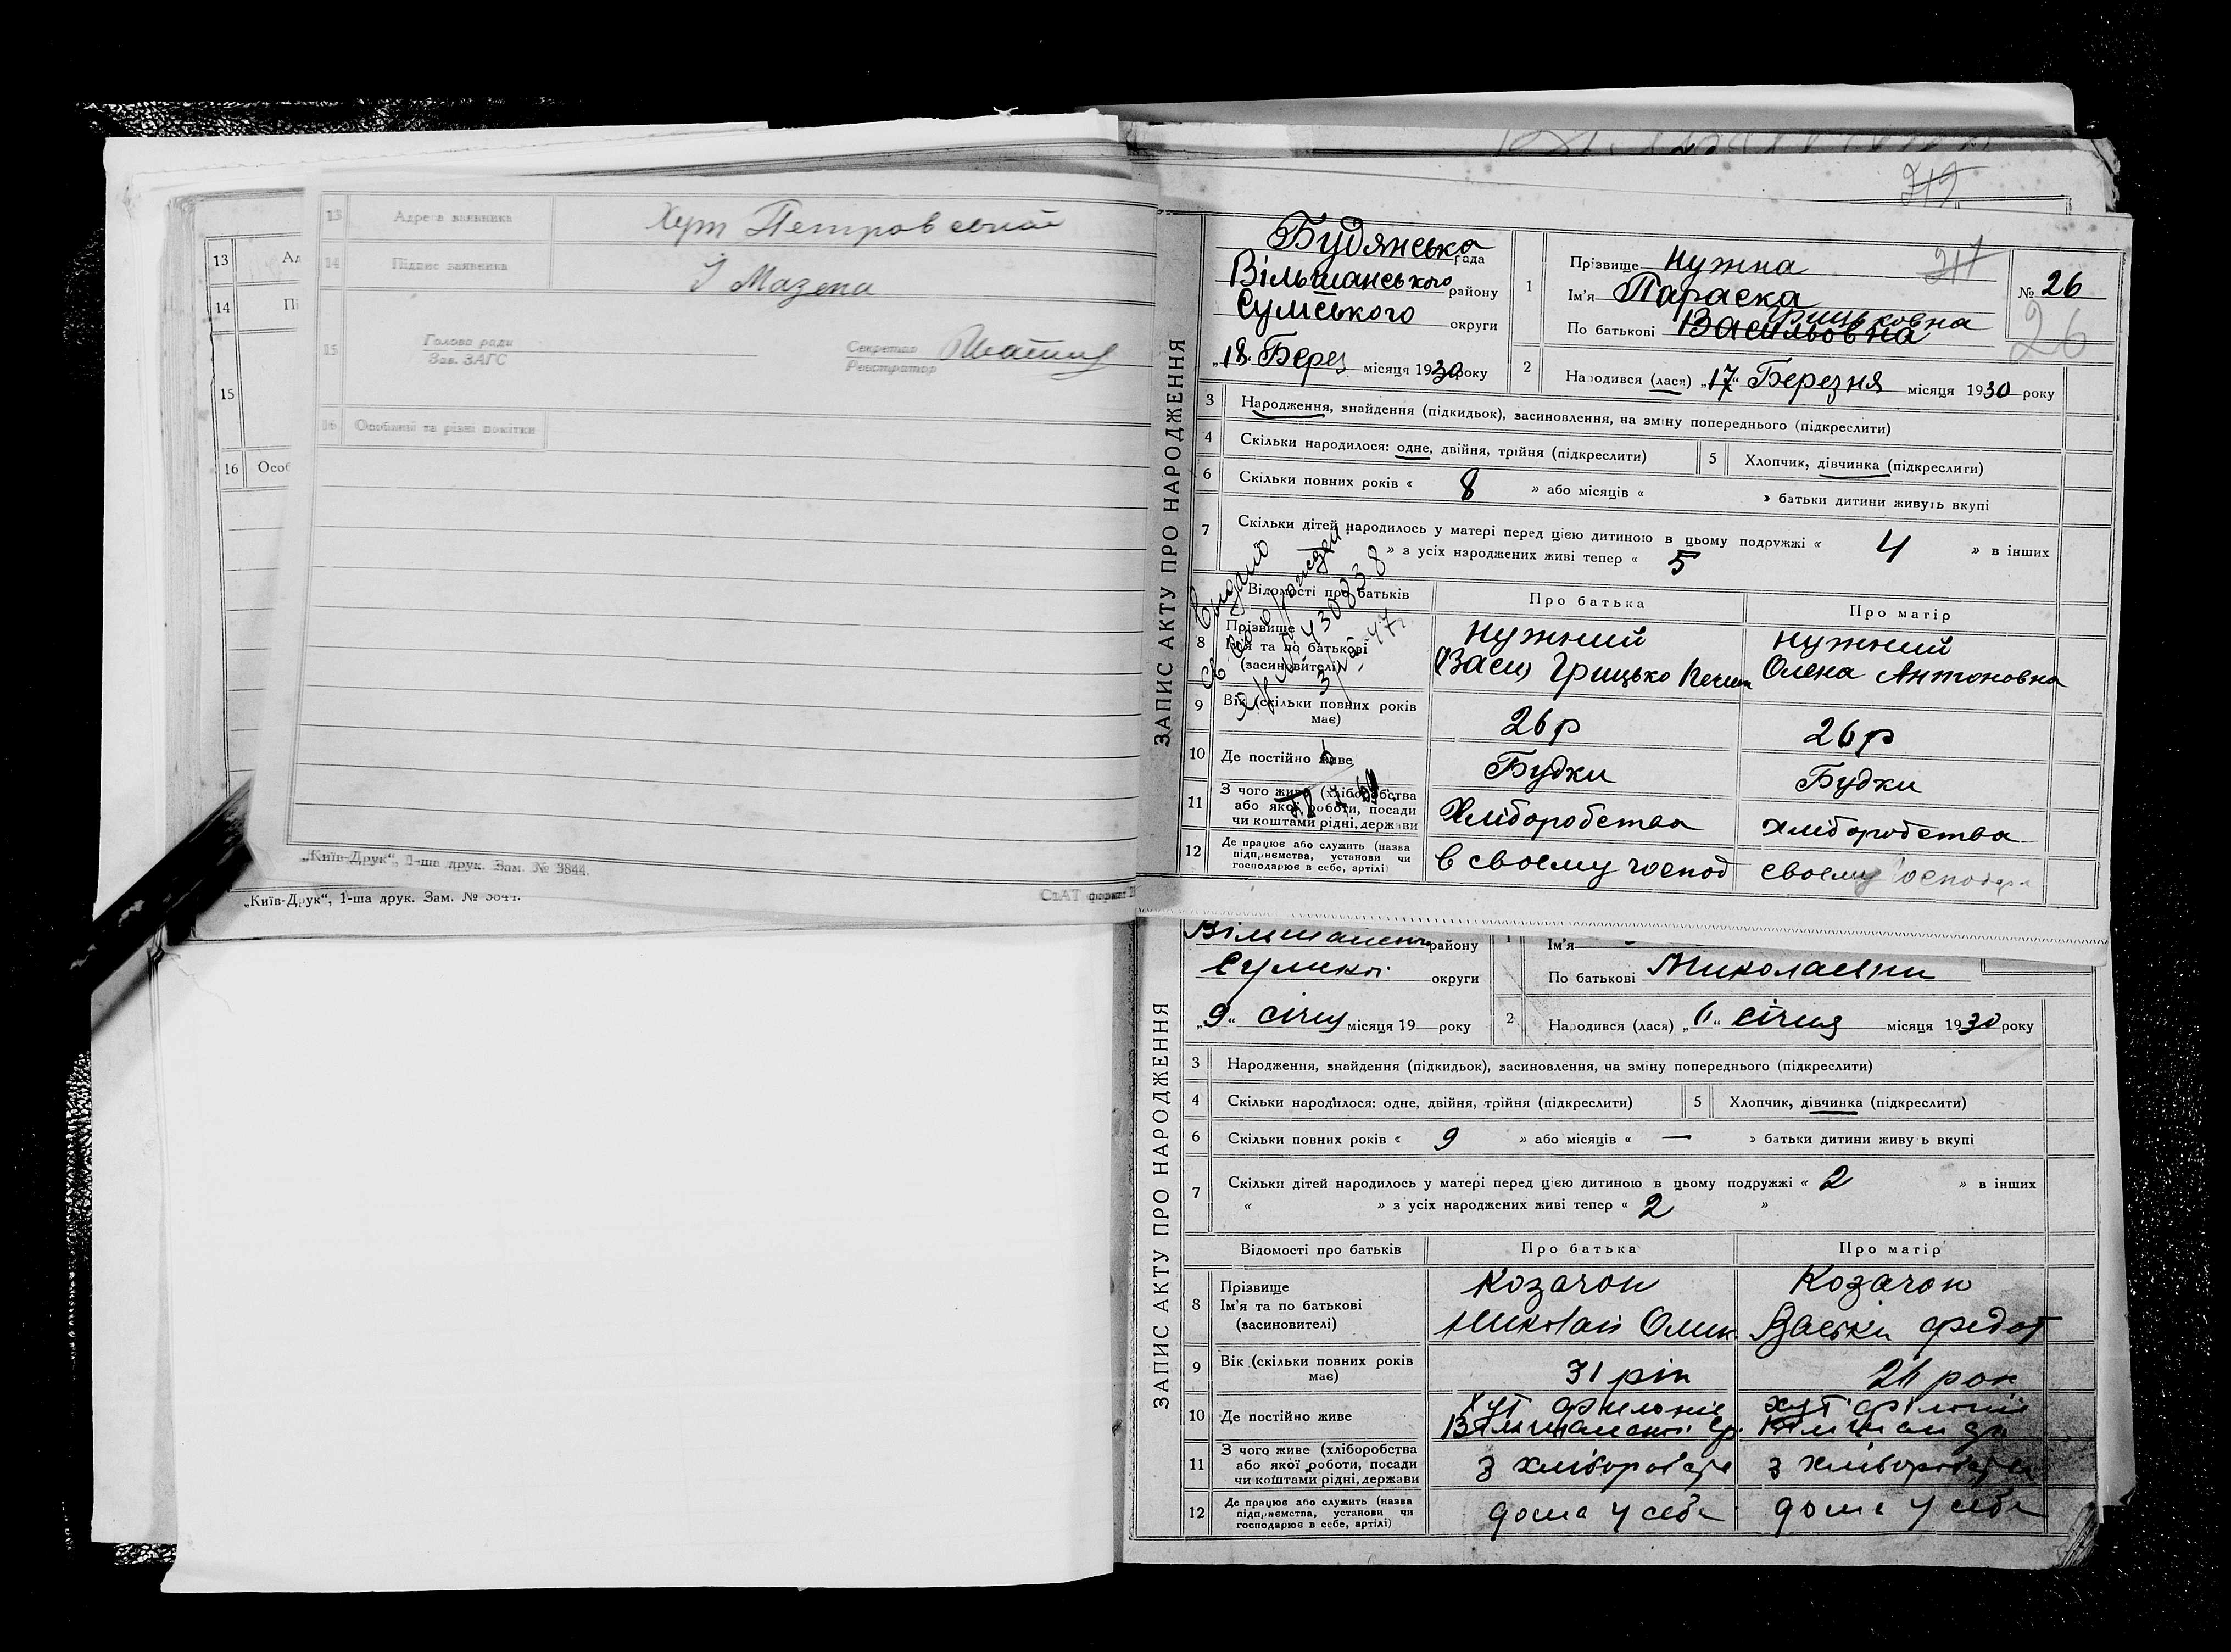 13 Адреса заявника Хут Петровський
14 Підпис заявника І Мазепа
15 Голова ради
Зав. ЗАГС
Секретар
Реєстратор
16 Особливі та різні помітки
„Київ-Друк“, 1-ша друк. Зам. № 3844.
13 Ад
14 Пі
15
16 Особ
„Київ-Друк“, 1-ша друк. Зам. № 3844.
СтАТ форма
ЗАПИС АКТУ ПРО НАРОДЖЕННЯ
Будянська рада
Вільшанського району
Сумського округи
„18“ Берез місяця 1930 року
1 Прізвище Нужна
Ім'я Параска
По батькові Васильовна Грицьковна
№ 26
26
217
2 Народився (лася) „17“ Березня місяця 1930 року
3 Народження, знайдення (підкидьок), засиновлення, на зміну попереднього (підкреслити)
4 Скільки народилося: одне, двійня, трійня (підкреслити)
5 Хлопчик, дівчинка (підкреслити)
6 Скільки повних років « 8 » або місяців « » батьки дитини живуть вкупі
7 Скільки дітей народилось у матері перед цією дитиною в цьому подружжі « 4 » в інших
» з усіх народжених живі тепер « 5
Видано
Відомості про батьків
Про батька
Про матір
8 Прізвище
Ім'я та по батькові
(засиновителі)
Нужний
(Васи) Грицько
Нужний
Олена Антоновна
9 Вік (скільки повних років має)
26 р
26 р
10 Де постійно живе
Будки
Будки
11 З чого живе (хліборобства
або якої роботи, посади
чи коштами рідні, держави
Хліборобства
хліборобства
12 Де працює або служить (назва
підприємства, установи чи
господарює в себе, артілі)
в своєму господ
своєму господар
ЗАПИС АКТУ ПРО НАРОДЖЕННЯ
району
округи
„9“ січня місяця 19 року
1 Ім'я
По батькові Миколаевни
2 Народився (лася) січня місяця 1930 року
3 Народження, знайдення (підкидьок), засиновлення, на зміну попереднього (підкреслити)
4 Скільки народилося: одне, двійня, трійня (підкреслити)
5 Хлопчик, дівчинка (підкреслити)
6 Скільки повних років « 9 » або місяців « — » батьки дитини живуть вкупі
7 Скільки дітей народилось у матері перед цією дитиною в цьому подружжі « 2 » в інших
« » з усіх народжених живі тепер « 2 »
Відомості про батьків
Про батька
Про матір
8 Прізвище
Ім'я та по батькові
(засиновителі)
Козачок
Николай Олик.
Козачок
Федот
9 Вік (скільки повних років
має)
31 рік
26 рок
10 Де постійно живе
Хут
хут
11 З чого живе (хліборобства
або якої роботи, посади
чи коштами рідні, держави
з хліборобств
з хліборобств
12 Де працює або служить (назва
підприємства, установи чи
господарює в себе, артілі)
дома у себе
дома у себе